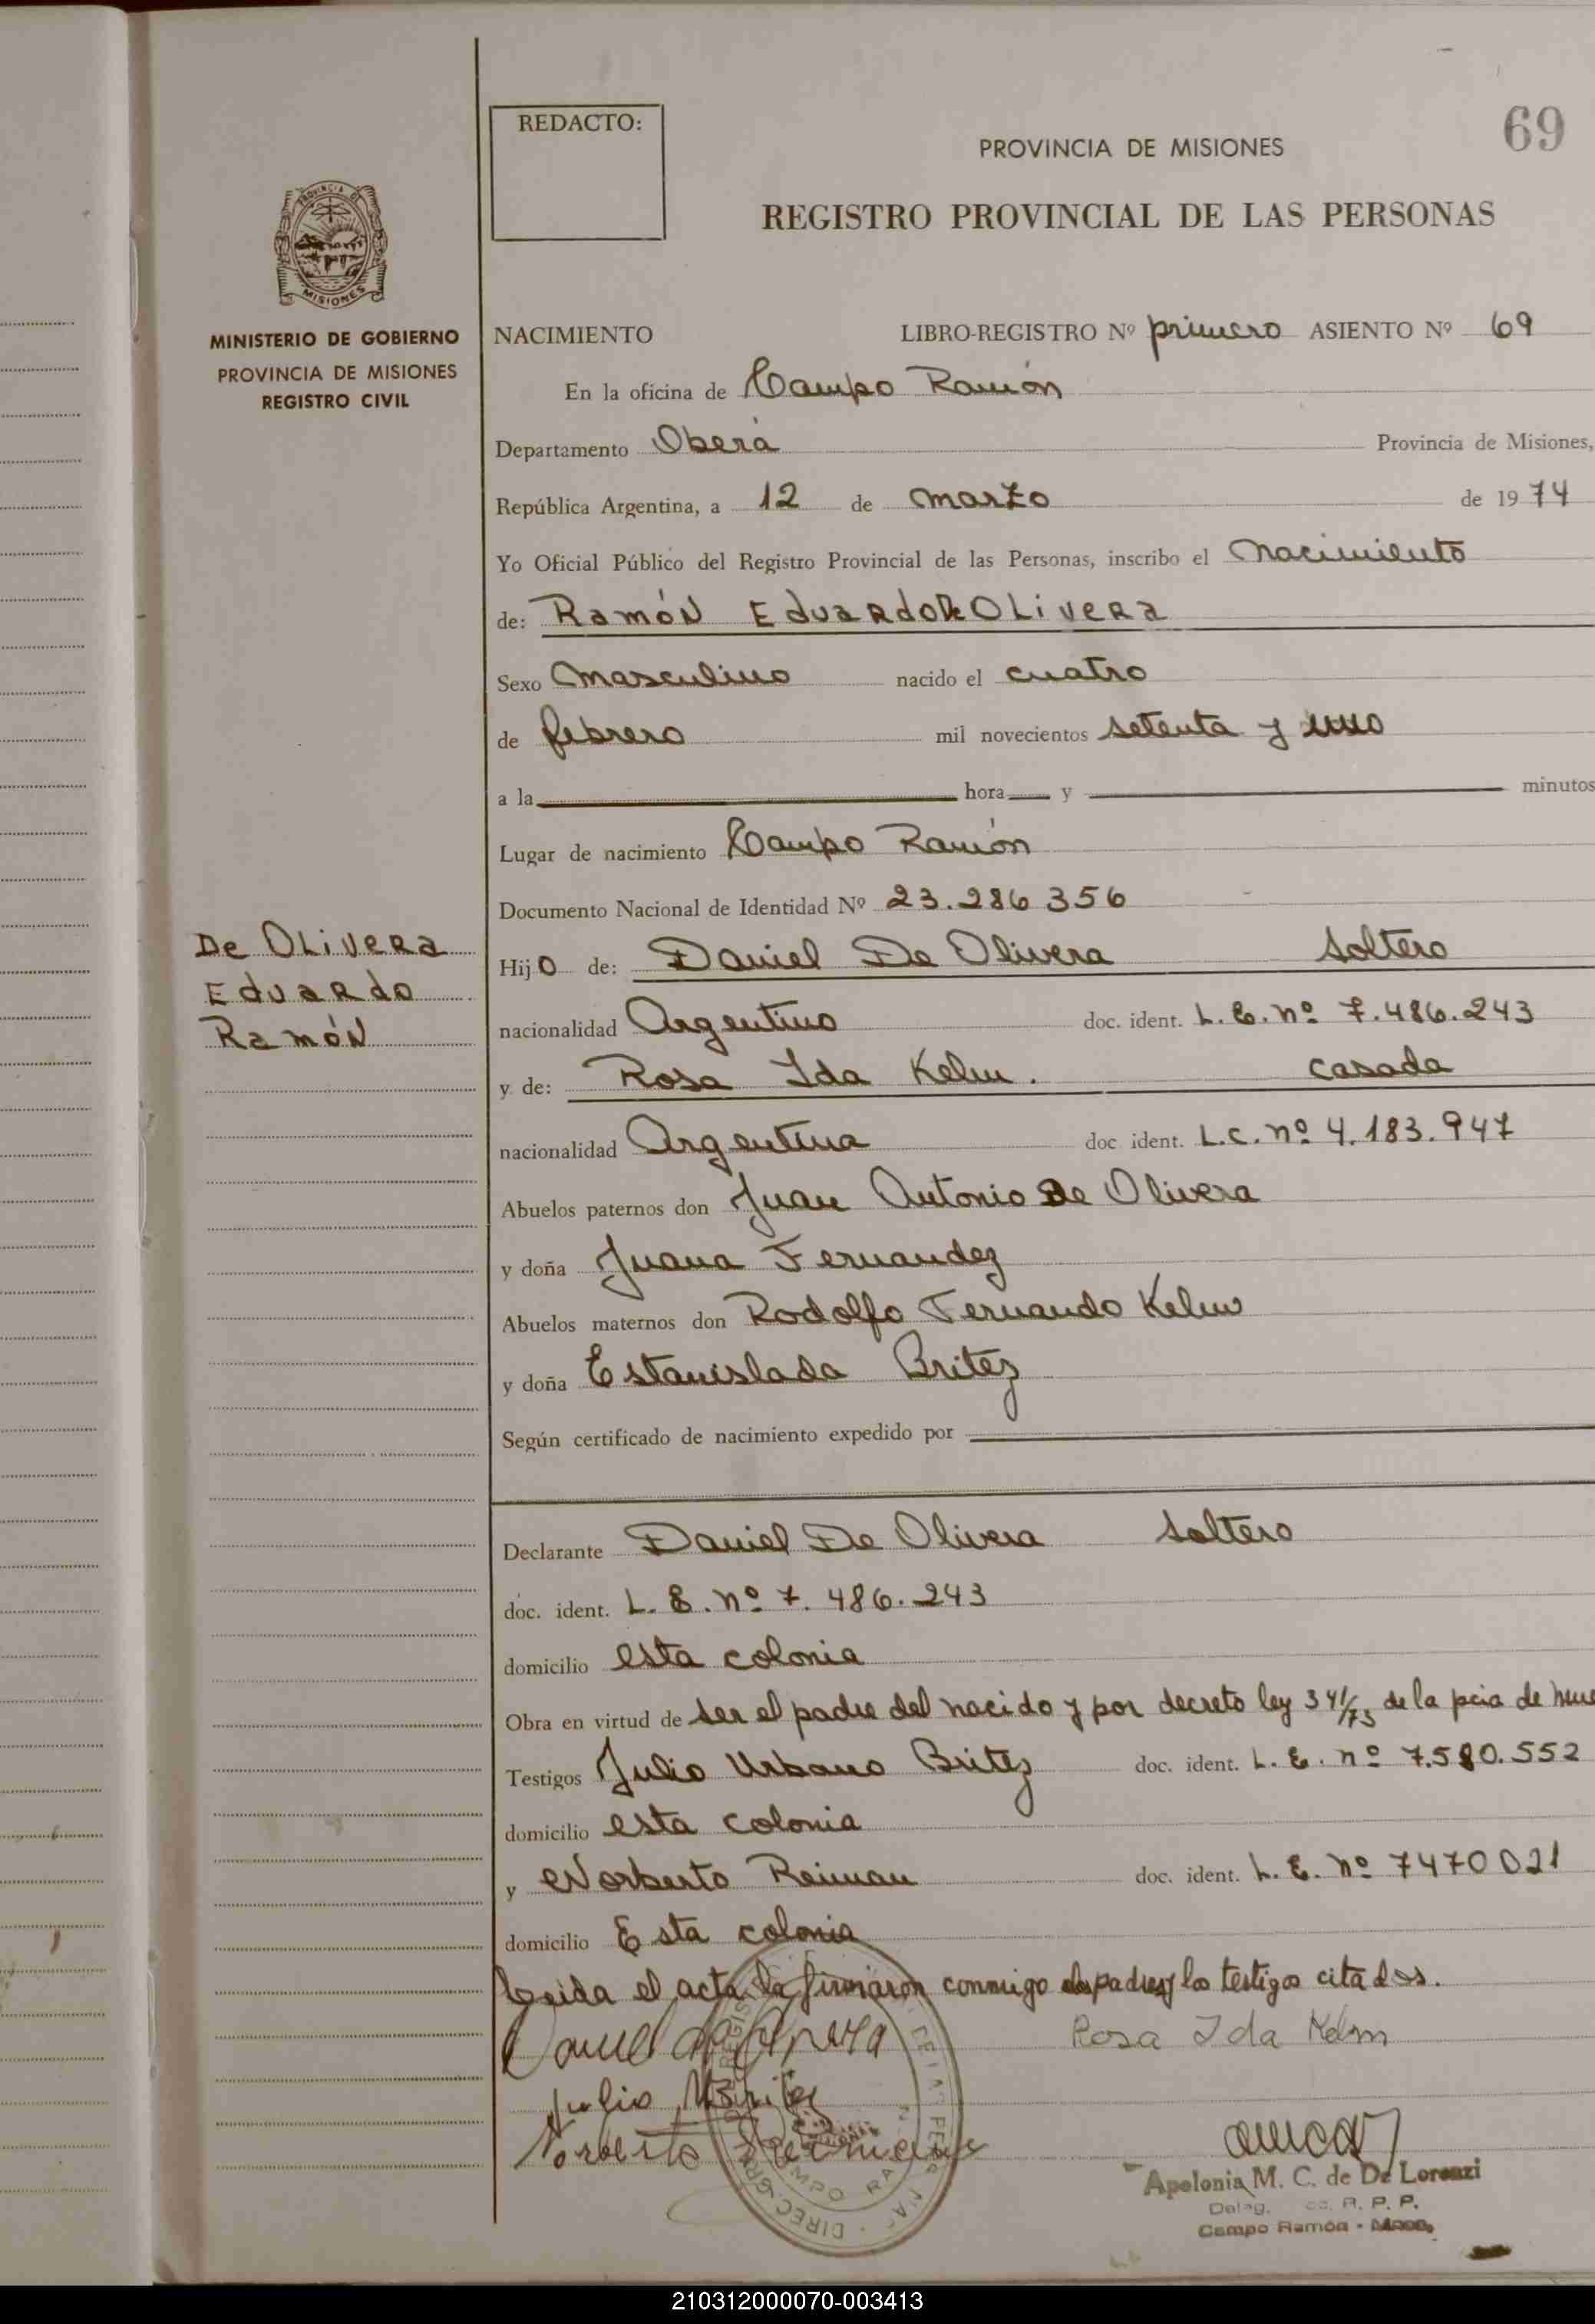 REDACTO:
69
PROVINCIA DE MISIONES
REGISTRO PROVINCIAL DE LAS PERSONAS
PROVINCIA DE
MISIONES
MINISTERIO DE GOBIERNO
PROVINCIA DE MISIONES
REGISTRO CIVIL
NACIMIENTO LIBRO-REGISTRO Nº primero ASIENTO Nº 69
En la oficina de Campo Ramón
Departamento Oberá Provincia de Misiones,
República Argentina, a 12 de marzo de 1974
Yo Oficial Público del Registro Provincial de las Personas, inscribo el nacimiento
de: Ramón Eduardo De Olivera
Sexo masculino nacido el cuatro
de febrero mil novecientos setenta y uno
a la hora y minutos
Lugar de nacimiento Campo Ramón
Documento Nacional de Identidad Nº 23.286356
De Olivera
Eduardo
Ramón
Hijo de: Daniel De Olivera soltero
nacionalidad Argentino doc. ident. L. E. nº 7.486.243
y de: Rosa Ida Kelm. casada
nacionalidad Argentina doc. ident. L.C. nº 4.183.947
Abuelos paternos don Juan Antonio De Olivera
y doña Juana Fernandez
Abuelos maternos don Rodolfo Fernando Kelm
y doña Estanislada Britez
Según certificado de nacimiento expedido por
Declarante Daniel De Olivera soltero
doc. ident. L. E. nº 7. 486. 243
domicilio esta colonia
Obra en virtud de ser el padre del nacido y por decreto ley 341/73 de la pcia de
Testigos Julio Urbano Britez doc. ident. L. E. nº 7.580.552
domicilio esta colonia
y Norberto Reiman doc. ident. L. E. nº 7470021
domicilio Esta colonia
Leida el acta la firmaron conmigo los padres y los testigos citados.
Rosa Ida Kelm
Julio Britez
Norberto
Apelonia M. C. de De Lorenzi
Deleg. R. P. P.
Campo Ramón - Mnes.
210312000070-003413